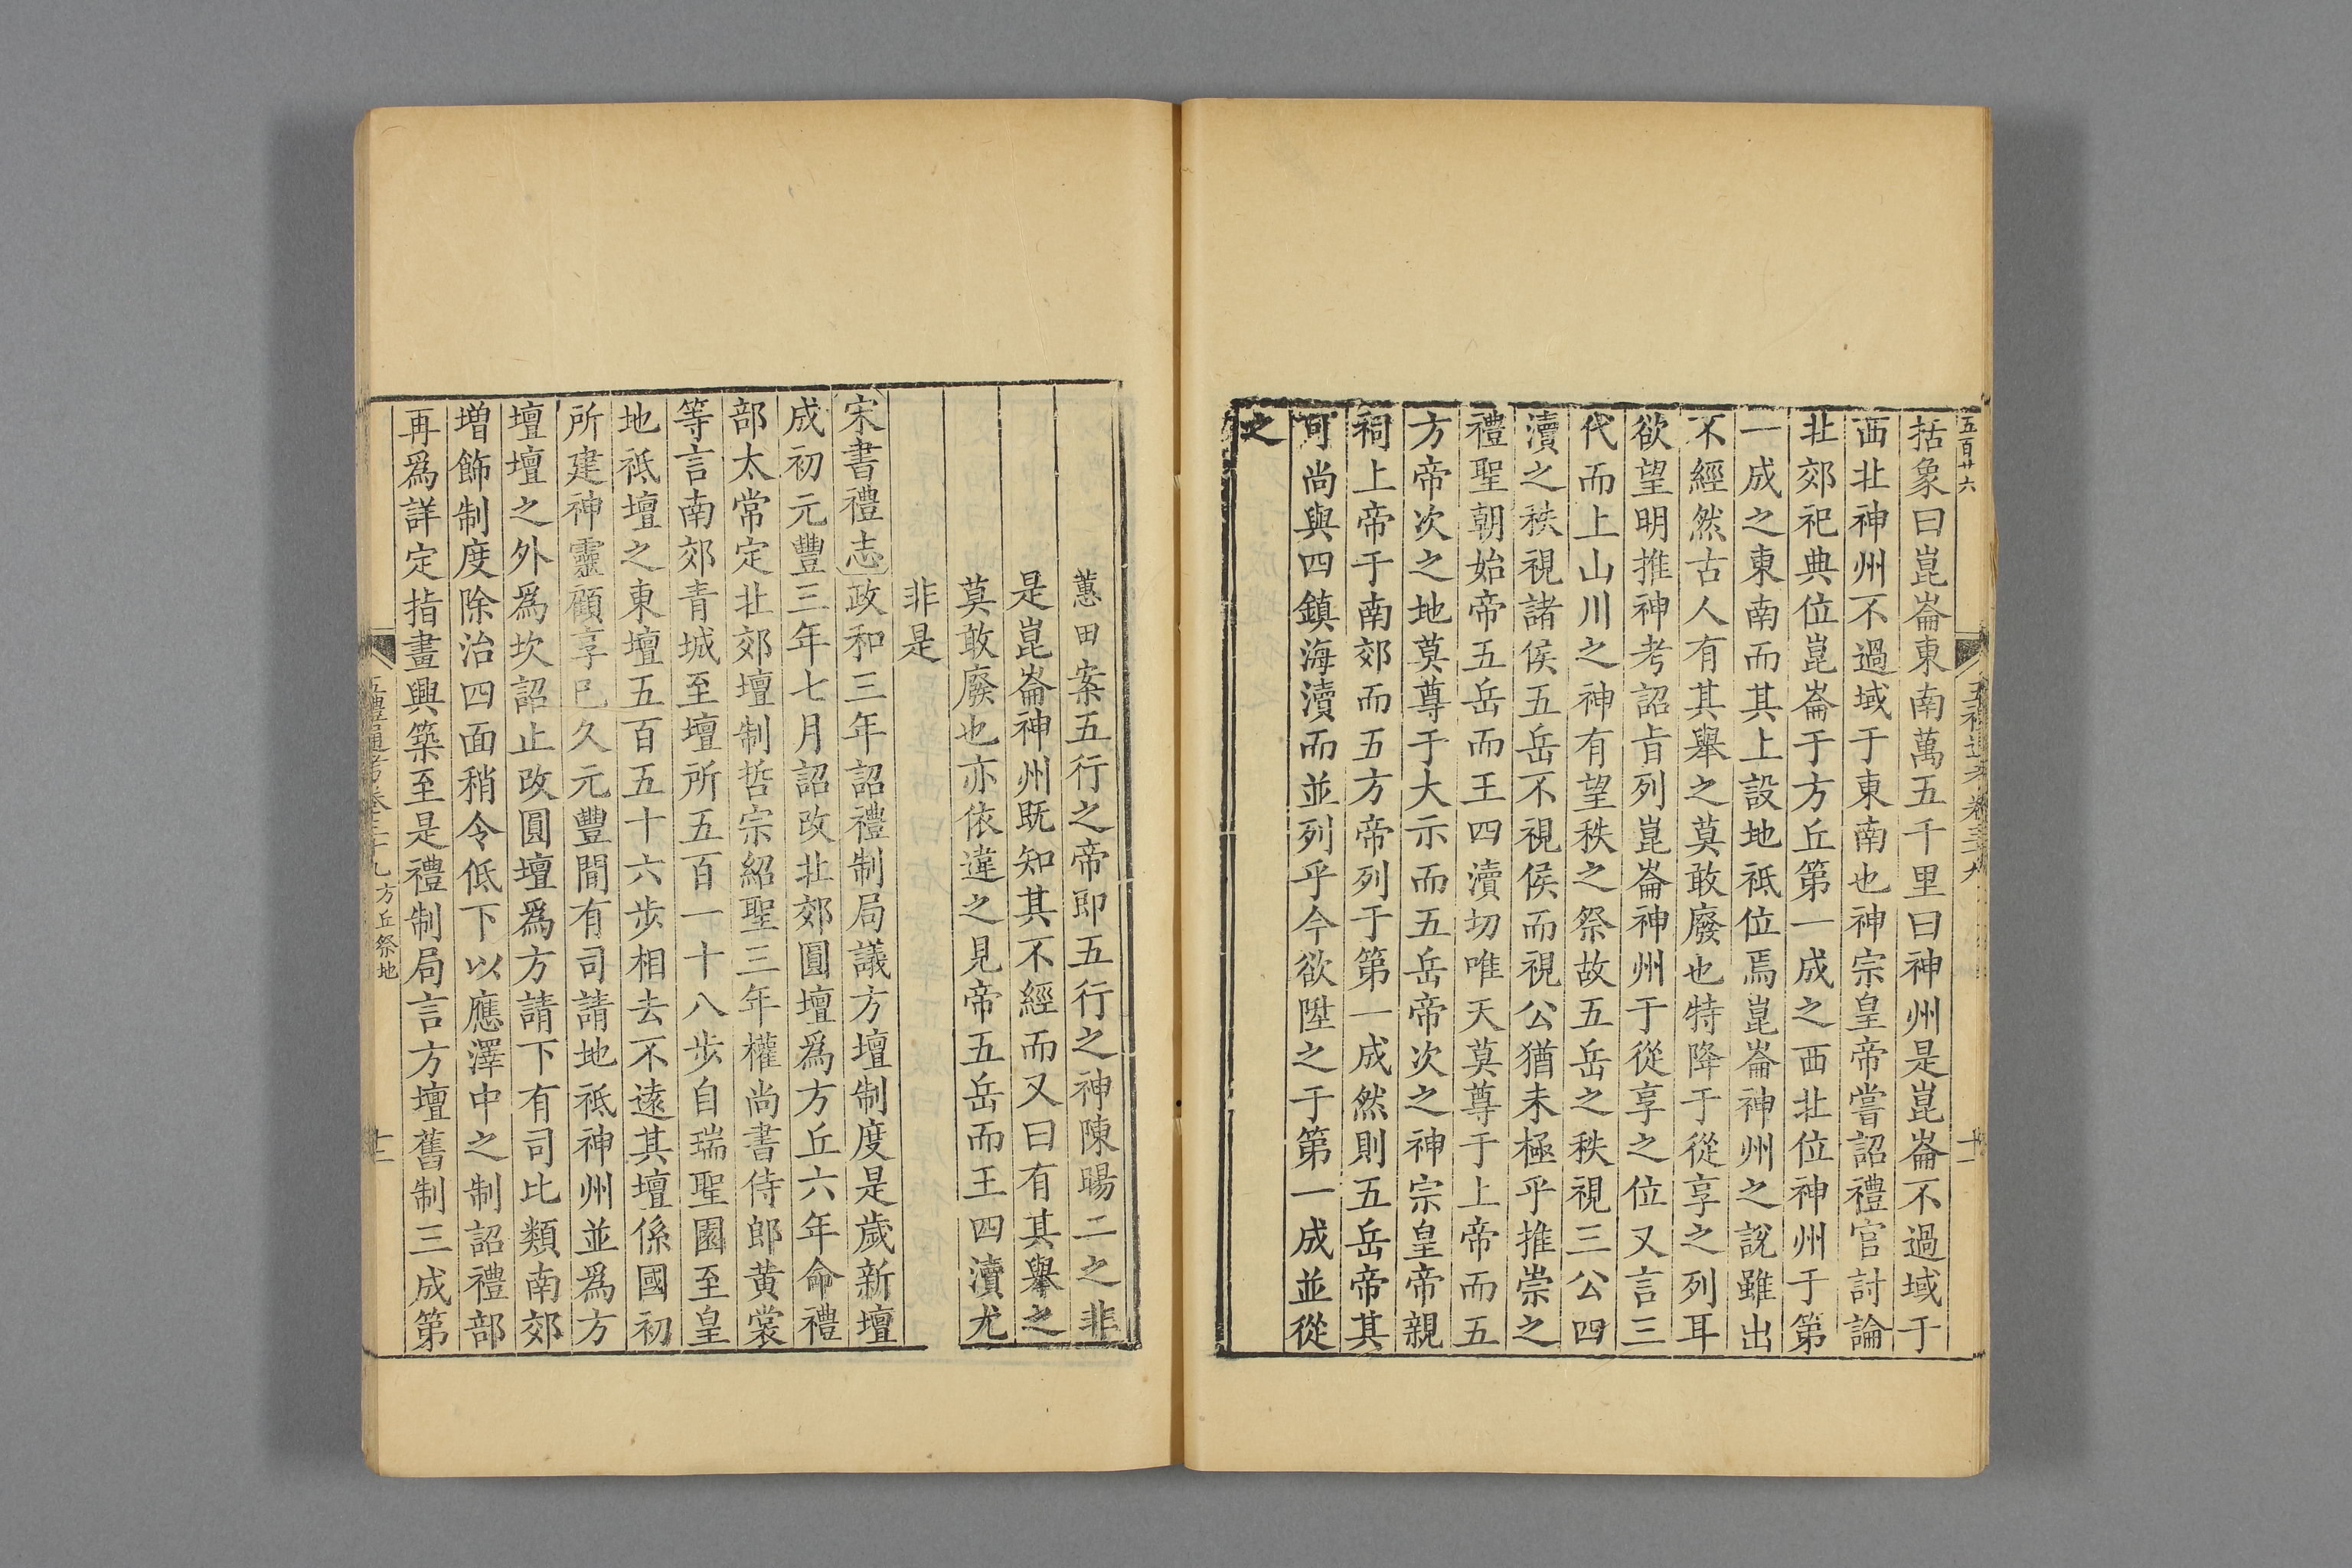 五百廿六
括象曰崑崙東南萬五千里曰神州是崑崙不過域于
西北神州不過域于東南也神宗皇帝嘗詔禮官討論
北郊祀典位崑崙于方丘第一成之西北位神州于第
一成之東南而其上設地祇位焉崑崙神州之說雖出
不經然古人有其舉之莫敢廢也特降于從享之列耳
欲望明推神考詔旨列崑崙神州于從享之位又言三
代而上山川之神有望秩之祭故五岳之秩視三公四
瀆之秩視諸侯五岳不視侯而視公猶未極乎推崇之
禮聖朝始帝五岳而王四瀆切唯天莫尊于上帝而五
方帝次之地莫尊于大示而五岳帝次之神宗皇帝親
祠上帝于南郊而五方帝列于第一成然則五岳帝其
可尚與四鎮海瀆而並列乎今欲陞之于第一成並從
之
蕙田案五行之帝即五行之神陳暘二之非
是崑崙神州既知其不經而又曰有其舉之
莫敢廢也亦依違之見帝五岳而王四瀆尤
非是
宋書禮志政和三年詔禮制局議方壇制度是歲新壇
成初元豐三年七月詔改北郊圓壇爲方丘六年命禮
部太常定北郊壇制哲宗紹聖三年權尚書侍郎黃裳
等言南郊青城至壇所五百一十八步自瑞聖園至皇
地祇壇之東壇五百五十六步相去不遠其壇係國初
所建神靈顧享已久元豐間有司請地祇神州並爲方
壇壇之外爲坎詔止改圓壇爲方請下有司比類南郊
增飾制度除治四面稍令低下以應澤中之制詔禮部
再爲詳定指畫興築至是禮制局言方壇舊制三成第
五禮通考卷三十九 方丘祭地 十二